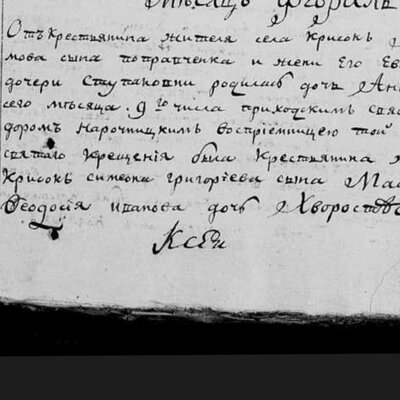 Мѣсяцъ Февраль
Отъ Крестьянина жителя села Крисокъ
мова сына поправченка и жены Его Ев
дочери Ступаковни родилась дочь Анн
сего мѣсяца 9го числа приходскимъ свя
доромъ Нарочницкимъ воспріемницею той
святаго Крещенія была Крестьянина
Крисокъ симеона григоріева сына Ма
Феодосія иванова дочь Хворостов